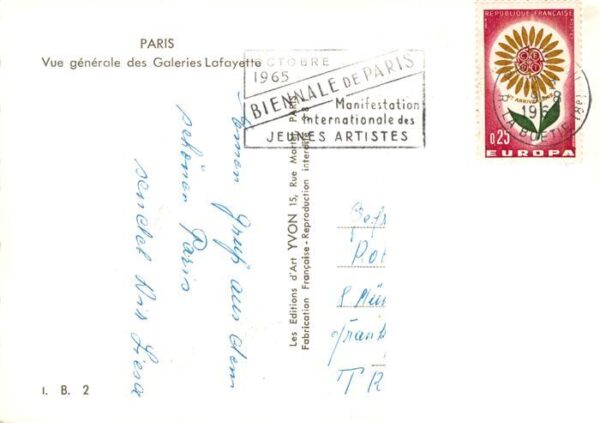 PARIS
Vue générale des Galeries Lafayette
OCTOBRE
1965
BIENNALE DE PARIS
Manifestation
Internationale des
JEUNES ARTISTES
REPUBLIQUE FRANÇAISE
ANNIVERSAIRE
0,25
EUROPA
196
R. LA BOETIE (8e)
Einen Gruß aus dem
schönen Paris
sendet
Les Editions d'Art YVON 15, Rue Martel, PARIS
Fabrication Française - Reproduction interdite
8 Mün
Frank
I. B. 2